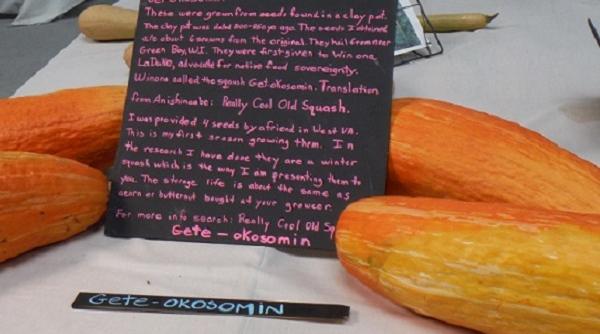 These were grown from seeds found in a clay pot.
The clay pot was dated 800-850 yo ago. The seeds I obtained
are about 6 seasons from the original. They hail from near
Green Bay, WI. They were first given to Winona
LaDuke, advocate for native food sovereignty.
Winona called the squash Gete okosomin. Translation
from Anishinaabe: Really Cool Old Squash.
I was provided 4 seeds by a friend in West VA.
This is my first season growing them. In
the research I have done they are a winter
squash which is the way I am presenting them to
you. The storage life is about the same as
acorn or butternut bought at your grower.
For more info search: Really Cool Old Sq
Gete - okosomin
GETE - OKOSOMIN